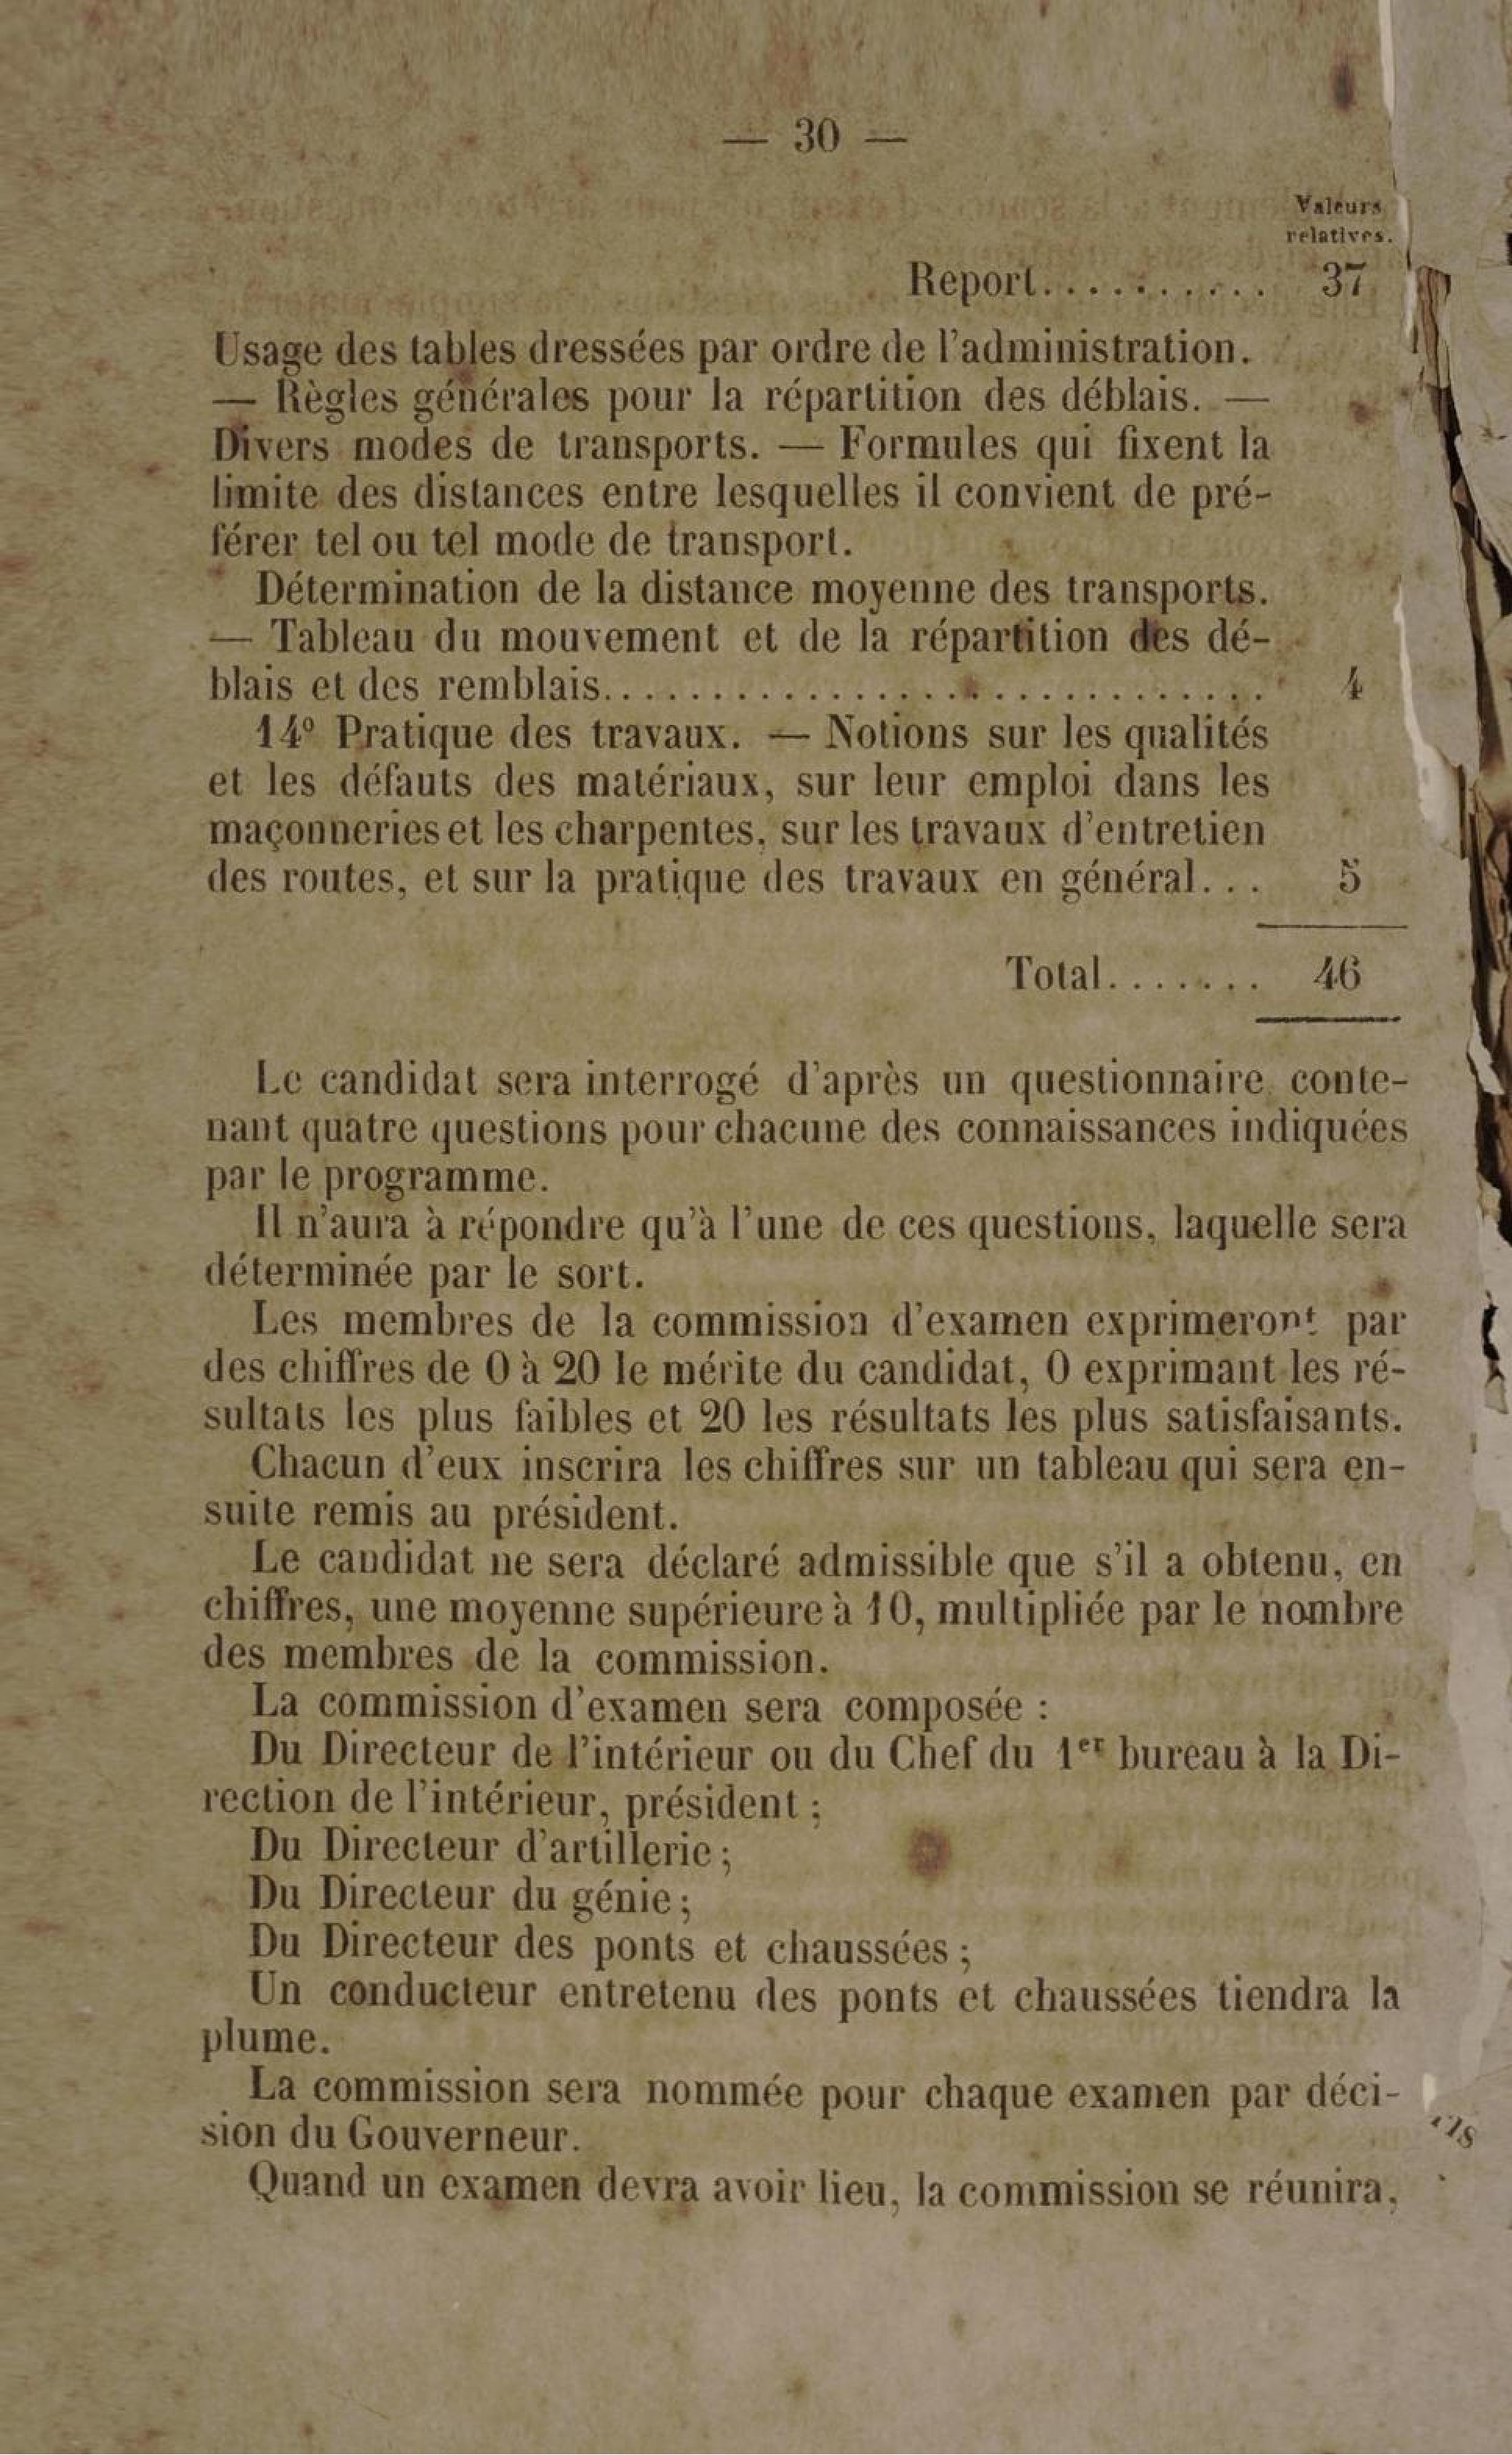 — 30 —
Valeurs
relatives.
Report........... 37
Usage des tables dressées par ordre de l'administration.
— Règles générales pour la répartition des déblais. —
Divers modes de transports. — Formules qui fixent la
limite des distances entre lesquelles il convient de pré-
férer tel ou tel mode de transport.
Détermination de la distance moyenne des transports.
— Tableau du mouvement et de la répartition des dé-
blais et des remblais............................... 4
14° Pratique des travaux. — Notions sur les qualités
et les défauts des matériaux, sur leur emploi dans les
maçonneries et les charpentes, sur les travaux d'entretien
des routes, et sur la pratique des travaux en général... 5
Total....... 46
Le candidat sera interrogé d'après un questionnaire conte-
nant quatre questions pour chacune des connaissances indiquées
par le programme.
Il n'aura à répondre qu'à l'une de ces questions, laquelle sera
déterminée par le sort.
Les membres de la commission d'examen exprimeront par
des chiffres de 0 à 20 le mérite du candidat, 0 exprimant les ré-
sultats les plus faibles et 20 les résultats les plus satisfaisants.
Chacun d'eux inscrira les chiffres sur un tableau qui sera en-
suite remis au président.
Le candidat ne sera déclaré admissible que s'il a obtenu, en
chiffres, une moyenne supérieure à 10, multipliée par le nombre
des membres de la commission.
La commission d'examen sera composée :
Du Directeur de l'intérieur ou du Chef du 1er bureau à la Di-
rection de l'intérieur, président ;
Du Directeur d'artillerie ;
Du Directeur du génie ;
Du Directeur des ponts et chaussées ;
Un conducteur entretenu des ponts et chaussées tiendra la
plume.
La commission sera nommée pour chaque examen par déci-
sion du Gouverneur.
Quand un examen devra avoir lieu, la commission se réunira,